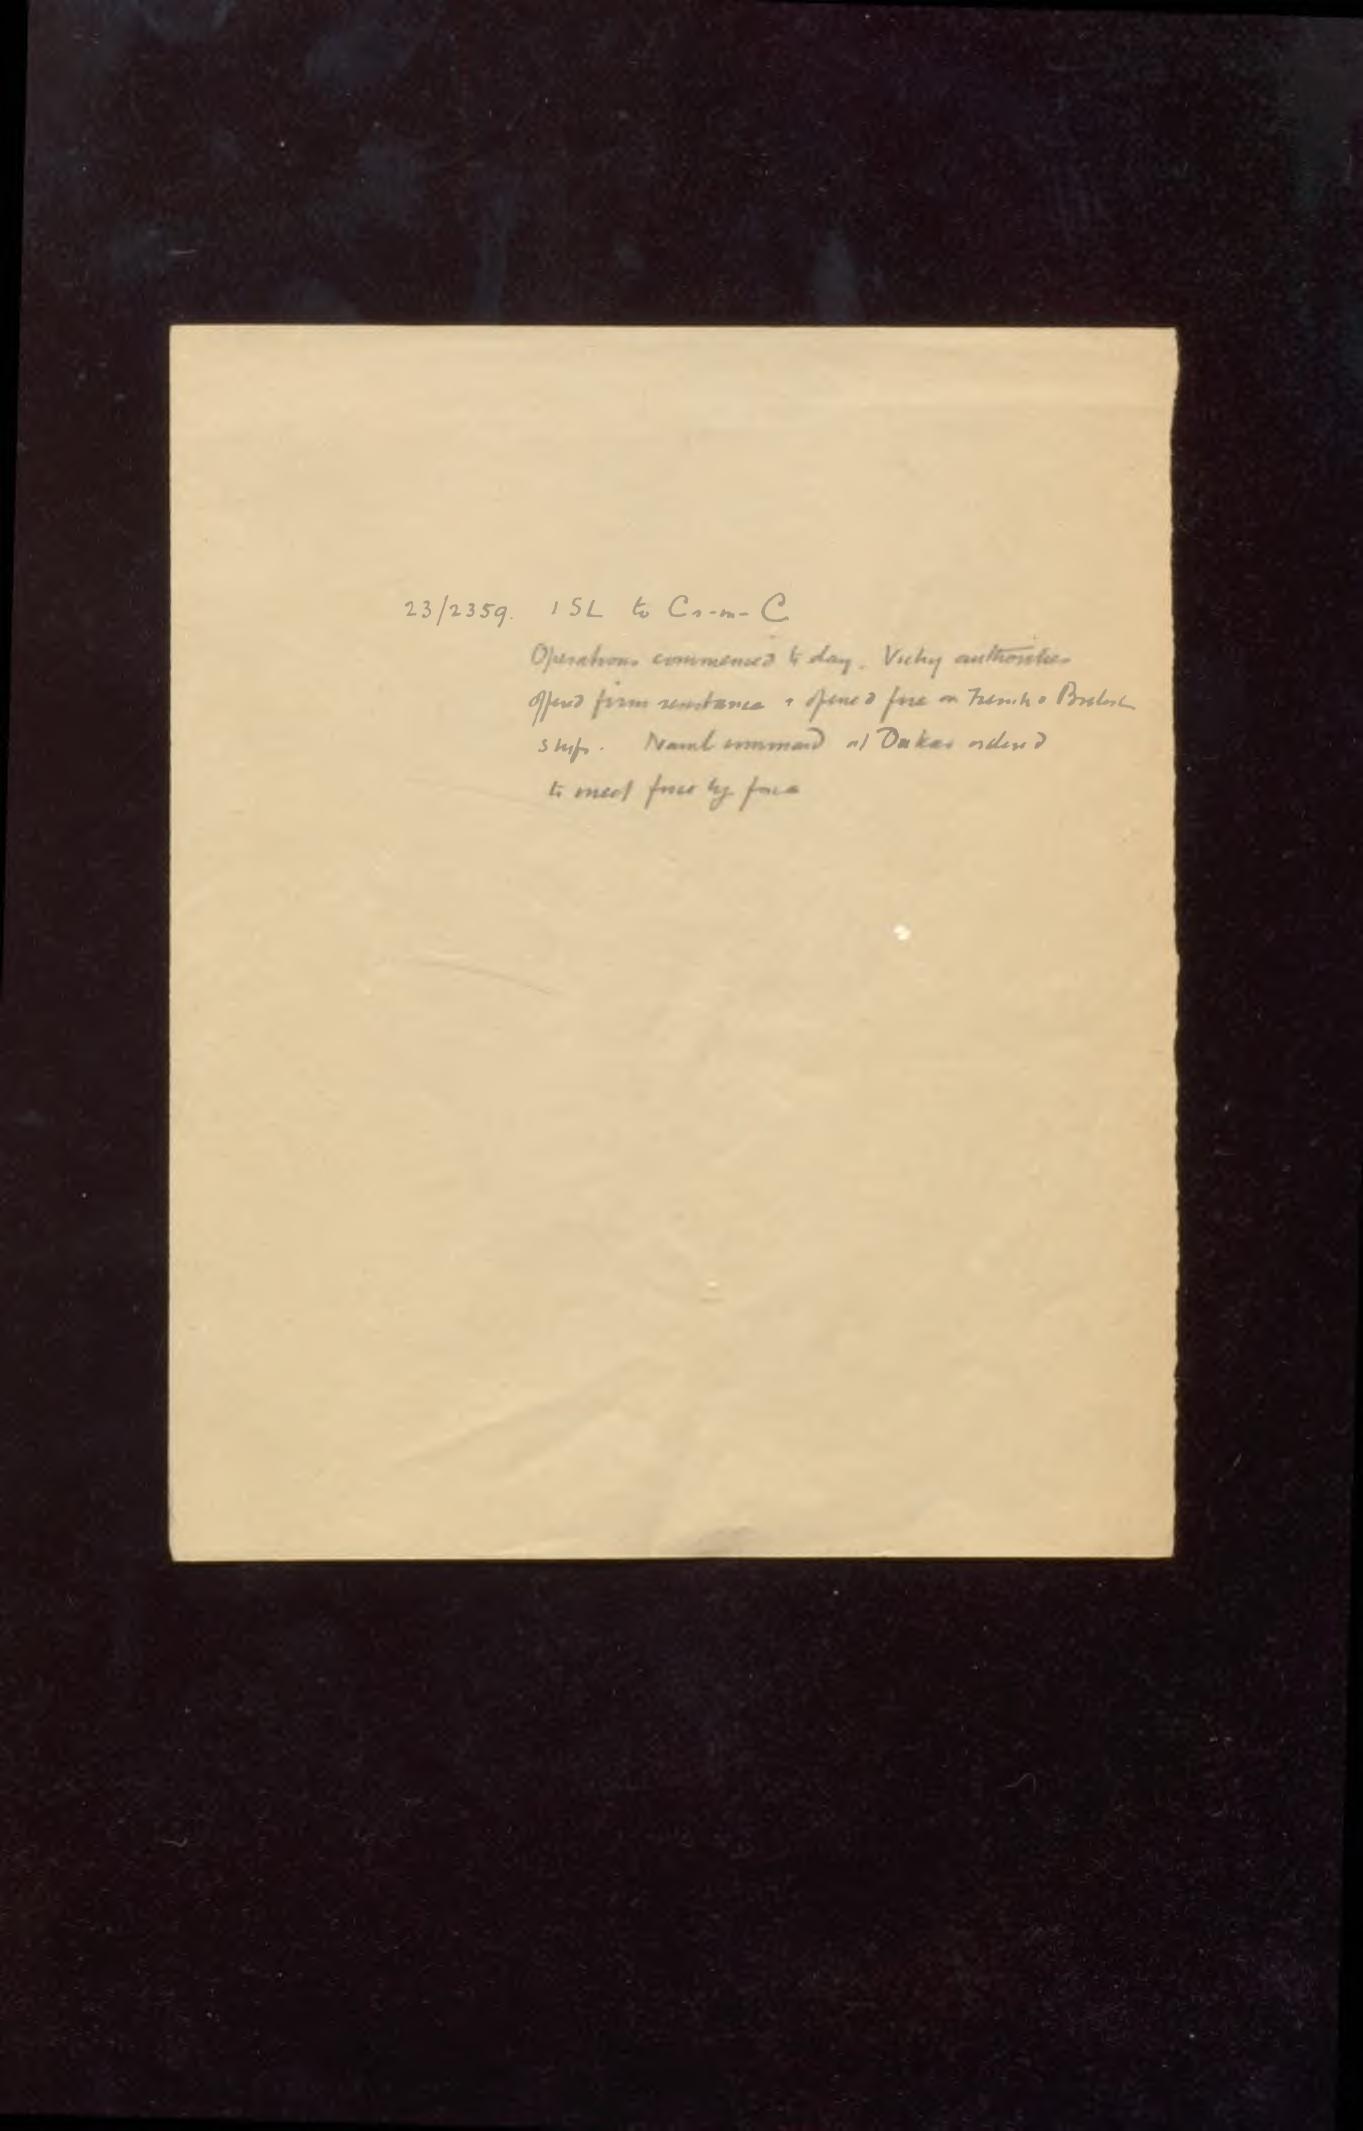 23/2359. 1SL to Cs-in-C
Operations commenced to day. Vichy authorities
offered firm resistance & opened fire on French & British
ships. Naval command at Dakar ordered
to meet force by force